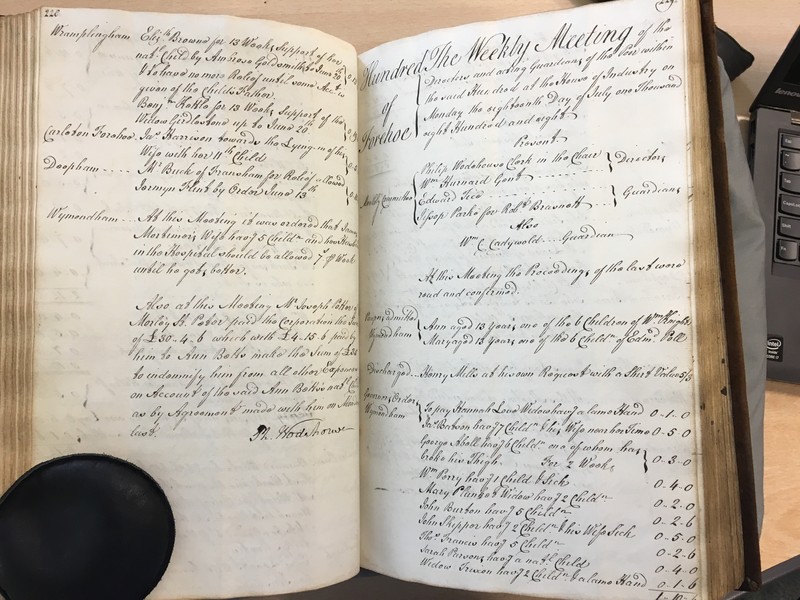 220
Wramplingham Eliz.th Browne for 13 Weeks Support of her
nat.l Child by Ambrose Goldsmith to June 20
& to have no more Relief until some Acc.t is
given of the Child's Father.
Benj.n Hettle for 13 Weeks Support of the
Widow Girdlestone up to June 20.th
Carleton Forehoe Ja.s Harrison towards the Lying-in of his
Wife with her 11.th Child
Deopham Buck of Fransham for Relief allowed
Jermyn Flint by Order June 13.th
Wymondham At this Meeting it was ordered that James
Mortimore's Wife hav.g 5 Child.n and her Husband
in the Hospital should be allowed 7.s P Week
until he gets better.
Also at this Meeting M.r Joseph of
Morley S.t Peter paid the Corporation the Sum
of £30-4-6 which with £4-15-6 paid by
him to Ann Botts make the Sum of £35
to indemnify him from all other Expences
on Account of the said Ann Botts's nat.l Child
as by Agreement made with him on Monday
last.
Ph. Wodehouse
221
Hundred of Forehoe
The Weekly Meeting of the
Directors and acting Guardians of the Poor within
the said Hundred at the House of Industry on
Monday the eighteenth Day of July one Thousand
eight Hundred and eight
Present
Weekly Committee
Philip Wodehouse Clerk in the Chair
W.m Hurnard Gent
Directors
Edward Seco
Jessop Parke for Rob.t Brasnett
Guardians
Also
W.m C Cadywold Guardian
At this Meeting the Proceedings of the last were
read and confirmed.
Paupers admitted
Wymondham
Ann aged 13 Years one of the 6 Children of W.m Knights
Mary aged 13 Years one of the 6 Child.n of Edm.d Poll
Discharged Henry Mills at his own Request with a Shirt Value 5/3
Governors Orders
Wymondham
To pay Hannah Love Widow hav.g a lame Hand 0-1-0
Ja.s Batson hav.g 7 Child.n & his Wife near her Time 0-5-0
George Abell hav.g 6 Child.n one of whom has
broke his Thigh. For 2 Weeks 0-3-0
W.m Perry hav.g 1 Child & Sick 0-4-0
Mary Widow hav.g 2 Child.n 0-2-0
John Burton hav.g 5 Child.n 0-2-6
John Skipper hav.g 2 Child.n & his Wife Sick 0-5-0
Tho.s Francis hav.g 5 Child.n 0-2-6
Sarah Parsons hav.g a nat.l Child 0-4-0
Widow Frixon hav.g 2 Child.n & a lame Hand 0-1-6
1-10-6
lenovo
intel